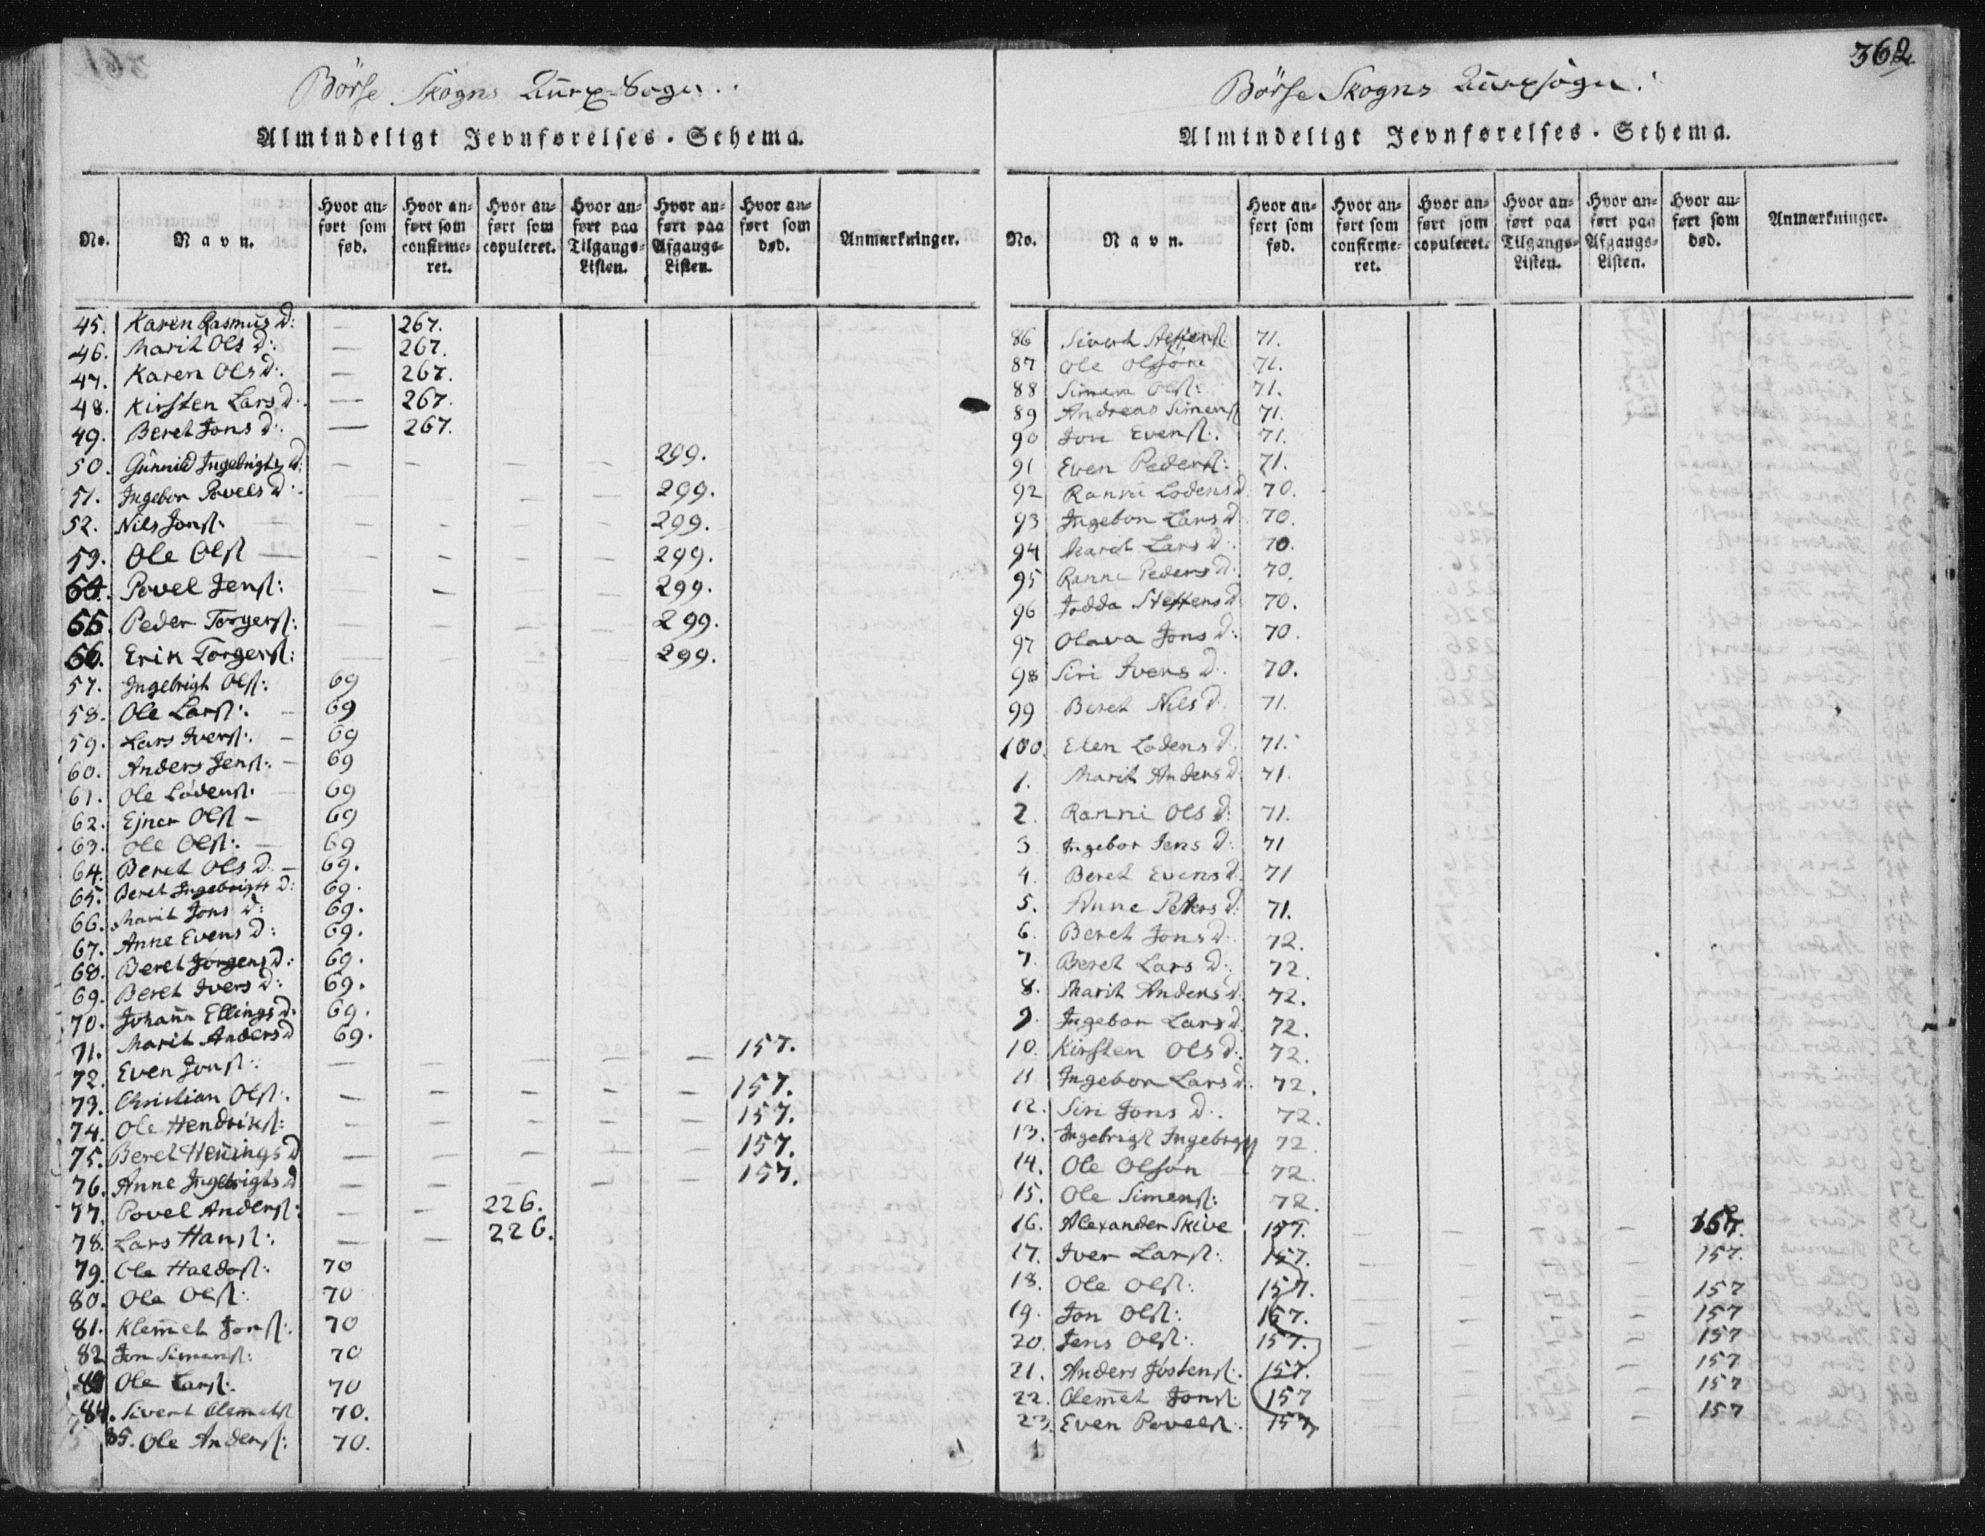 362
Börse Skogns
Almindeligt Jevnførelses-Schema.
No. Navn. Hvor anført som fød. Hvor anført som confirmeret. Hvor anført som copuleret. Hvor anført paa Tilgangs-Listen. Hvor anført paa Afgangs-Listen. Hvor anført som død. Anmærkninger.
45. Karen Rasmus D: — 267.
46. Marit Ols D: — 267.
47. Karen Ols D: — 267.
48. Kirsten Lars D: — 267.
49. Beret Jons D: — 267.
50. Gunnild Ingebrigts D: — — — — 299.
51. Ingebor Povels D: — — — — 299.
52. Nils Jonsß: — — — — 299.
53. Ole Olsß — — — — 299.
54. Povel Jensß: — — — — 299.
55. Peder Torgersß: — — — — 299.
56. Erik Torgersß: — — — — 299.
57. Ingebrigt Olsß: 69
58. Ole Larsß: — 69
59. Lars Iversß: — 69
60. Anders Jensß: — 69
61. Ole Lodensß: — 69
62. Ejner Olsß — 69
63. Ole Olsß: — 69
64. Beret Ols D. — 69.
65. Beret Ingebrigt D: 69.
66. Marit Jons D: 69.
67. Anne Evens D: 69.
68. Beret Jörgens D: 69.
69. Beret Ivers D: 69.
70. Johanna Ellings D: 69.
71. Marit Anders D 69.
72. Even Jonsß: — — — — — 157.
73. Christian Olsß: — — — — — 157.
74. Ole Hendriksß: — — — — — 157.
75. Beret Hennings D — — — — — 157.
76. Anne Ingebrigts D — — — — — 157.
77. Povel Andersß: — — 226.
78. Lars Hansß: — — 226.
79. Ole Haldosß: 70
80. Ole Olsß: 70
81. Klemet Jonsß: 70
82 Jon Simensß: 70
83 Ole Larsß: 70
84. Sivert Clemetsß 70.
85. Ole Andersß: 70.
Börse Skogns
Almindeligt Jevnførelses-Schema.
No. Navn. Hvor anført som fød. Hvor anført som confirmeret. Hvor anført som copuleret. Hvor anført paa Tilgangs-Listen. Hvor anført paa Afgangs-Listen. Hvor anført som død. Anmærkninger.
86 Sivert Steffensß: 71.
87 Ole Olsön 71.
88 Simen Olsß: 71.
89 Andreas Simensß 71.
90 Jon Evensß: 71.
91 Even Pedersß: 71.
92 Ranni Lodens D 70.
93 Ingebor Lars D 70.
94 Marit Lars D: 70.
95 Ranni Peders D: 70.
96 Jodda Steffens D 70.
97 Olava Jons D: 70.
98 Siri Ivers D. 70.
99 Beret Nils D: 71.
100. Elen Lodens D. 71.
1. Marit Anders D 71.
2. Ranni Ols D: 71.
3 Ingebor Jens D: 71
4. Beret Evens D: 71
5. Anne Petters D: 71.
6. Beret Jons D: 72.
7. Beret Lars D: 72.
8. Marit Anders D. 72.
9. Ingebor Lars D. 72.
10. Kirsten Ols D: 72.
11 Ingebor Lars D. 72.
12. Siri Jons D: 72.
13. Ingebrigt 72
14. Ole Olsön 72.
15. Ole Simensß: 72.
16. Alexander Skive 157. — — — — 157.
17. Iver Larsß: 157. — — — — 157.
18. Ole Olsß: 157. — — — — 157
19. Jon Olsß: 157. — — — — 157
20. Jens Olsß: 157. — — — — 157
21. Anders Jostensß: 157. — — — — 157
22. Clemet Jonsß: 157 — — — — 157
23. Even Povelsß: 157 — — — — 157